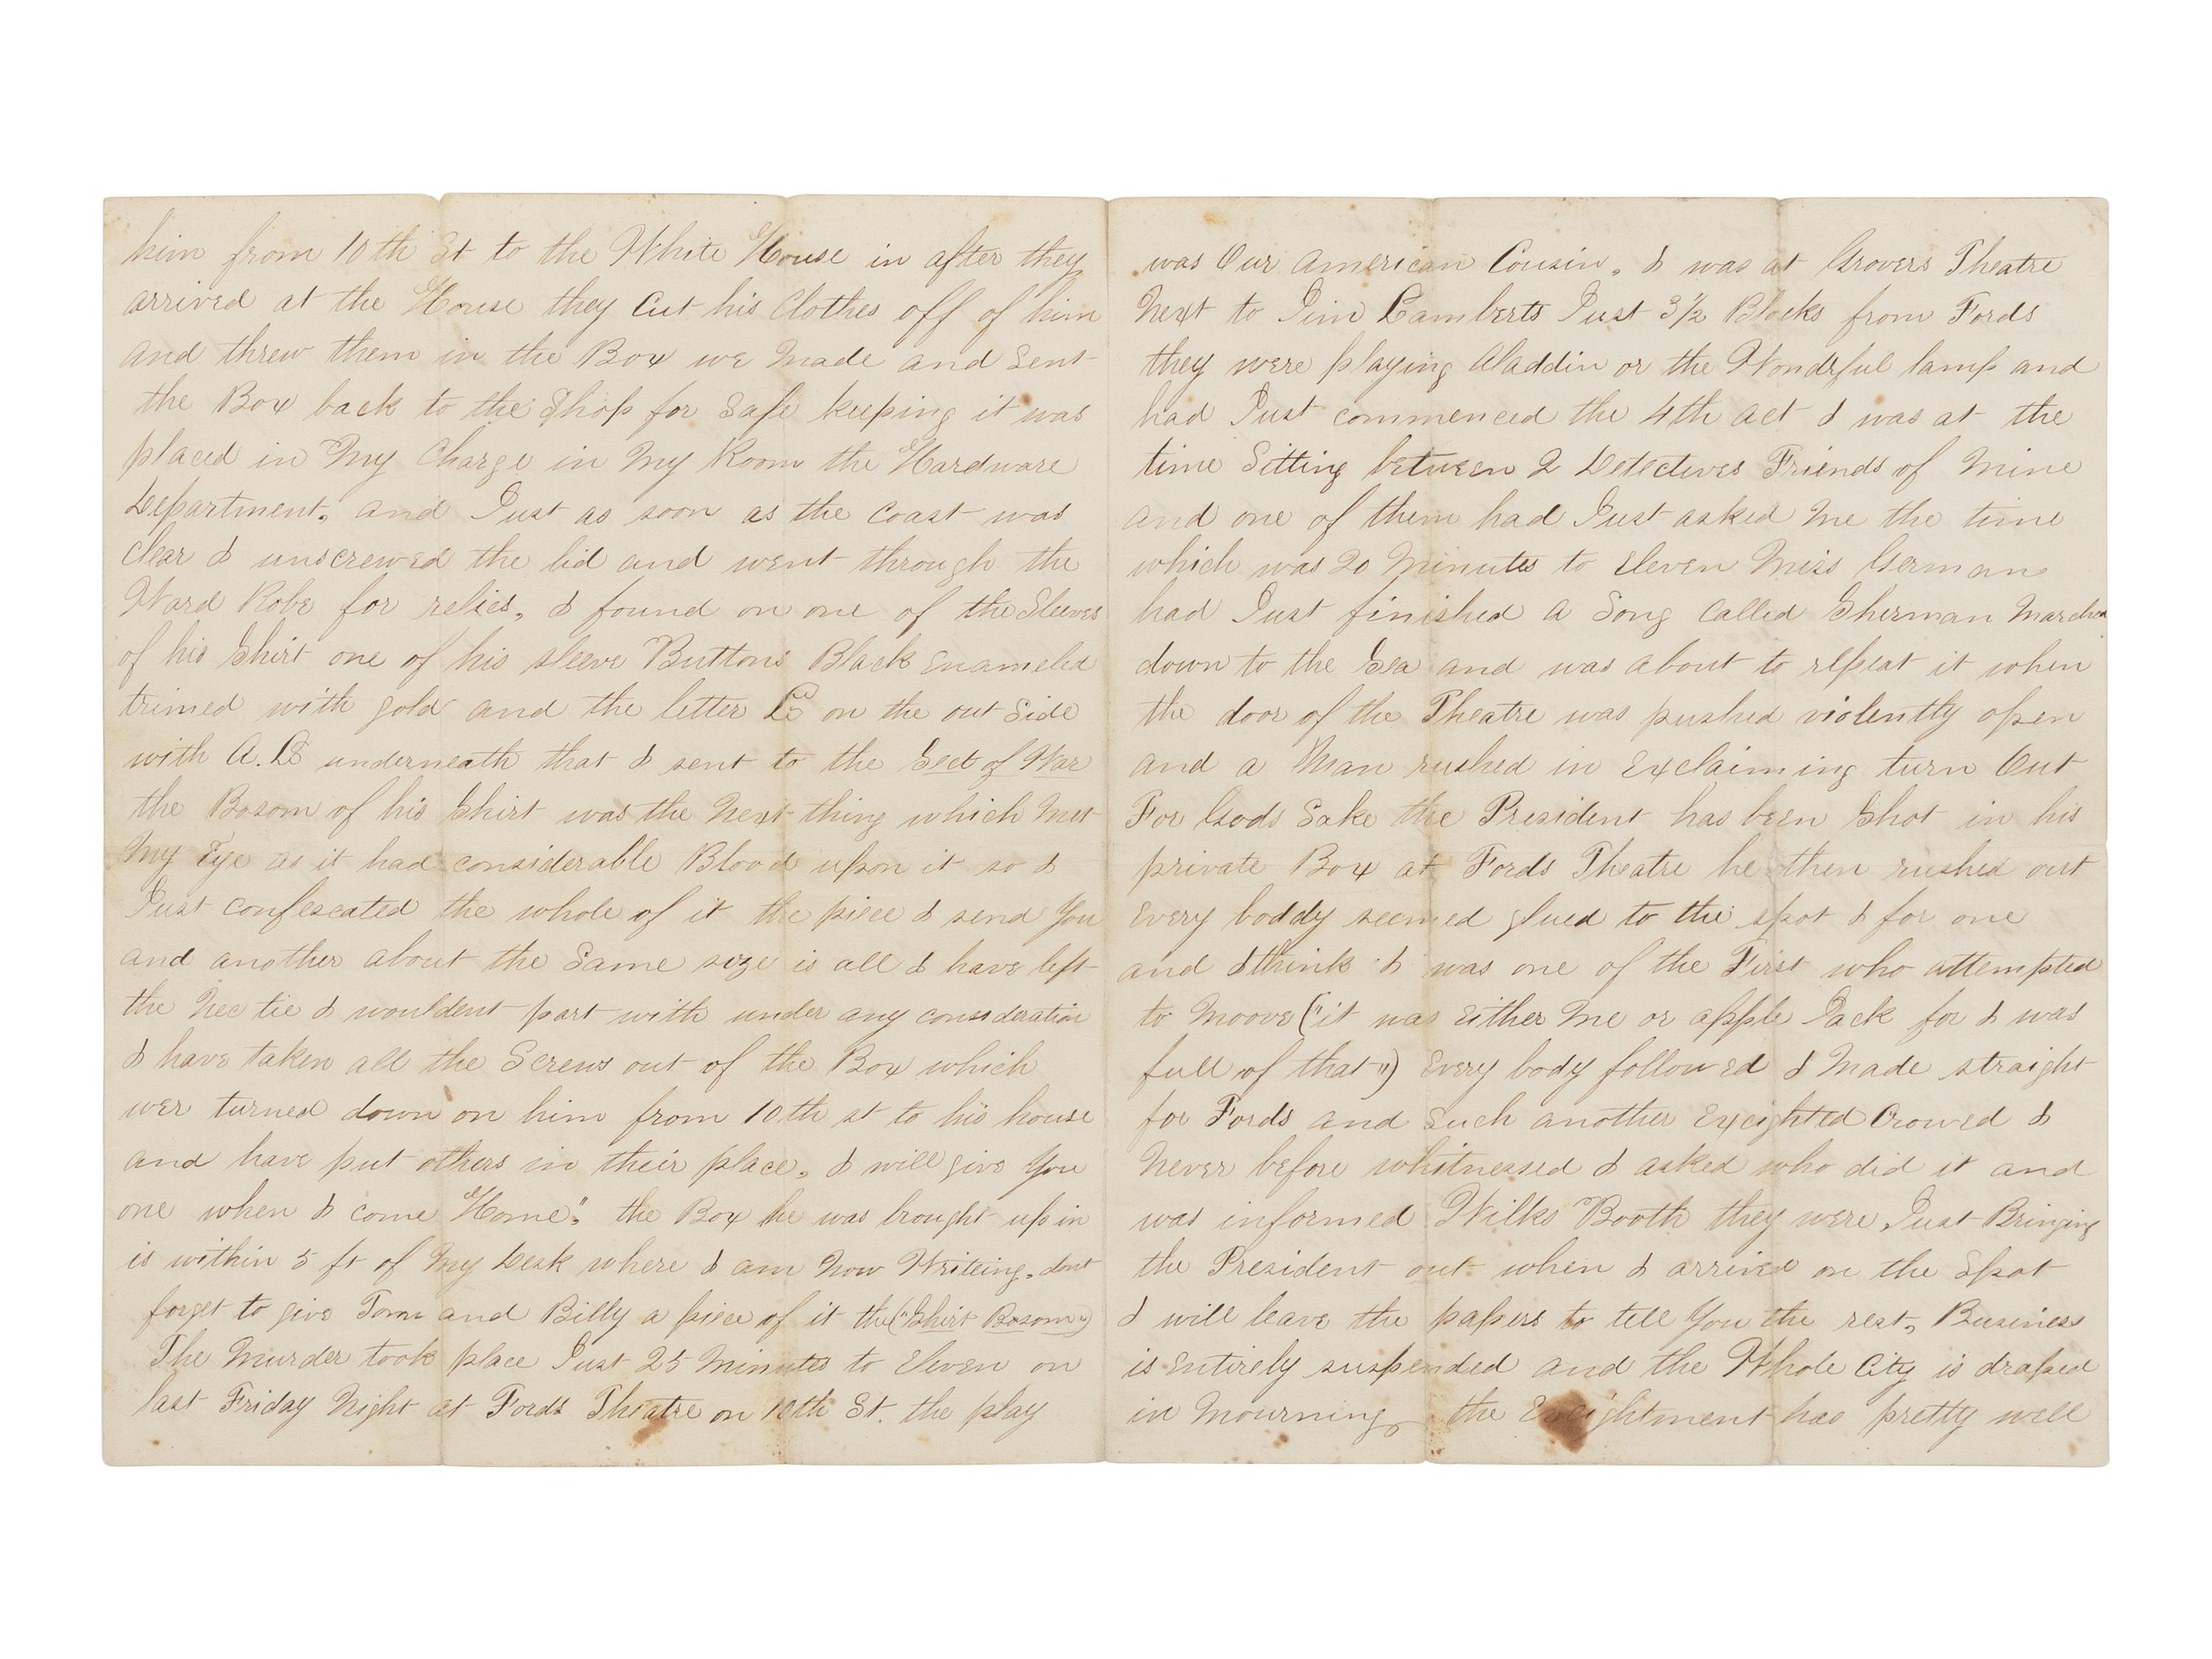 him from 10th St to the White House in after they
arrived at the House they Cut his Clothes off of him
and threw them in the Box we Made and Sent
the Box back to the Shop for Safe keeping it was
placed in My Charge in My Room the Hardware
Department, and Just as soon as the Coast was
clear I unscrewed the lid and went through the
Ward Robe for relics, I found on one of the Sleeves
of his Shirt one of his sleeve Buttons Black Enameled
trimed with gold and the letter L on the out Side
with A. L underneath that I sent to the Sect of War
the Bosom of his Shirt was the Next thing which Met
My Eye as it had considerable Blood upon it so I
Just confescated the whole of it the piece I send You
and another about the Same size is all I have left
the Nec tie I wouldent part with under any consideration
I have taken all the Screws out of the Box which
wer turned down on him from 10th st to his house
and have put others in their place, I will give You
one when I come Home". the Box he was brought up in
is within 5 ft of My Desk where I am Now Writeing. dont
forget to give Tom and Billy a piece of it the ("Shirt Bosom")
The Murder took place Just 25 Minutes to Eleven on
last Friday Night at Fords Theatre on 10th St. the play
was Our American Cousin. I was at Grovers Theatre
Next to Jim Lamberts Just 3 1/2 Blocks from Fords
they were playing Aladdin or the Wonderful lamp and
had Just commenced the 4th Act I was at the
time Sitting between 2 Detectives Friends of Mine
and one of them had Just asked Me the time
which was 20 Minutes to Eleven Miss German
had Just finished a Song Called Sherman Marched
down to the Sea and was about to repeat it when
the door of the Theatre was pushed violently open
and a Man rushed in Exclaiming turn Out
For Gods Sake the President has been Shot in his
private Box at Fords Theatre he then rushed out
Every boddy seemed glued to the spot I for one
and I think I was one of the First who attempted
to Moove ("it was Either Me or apple Jack for I was
full of that") Every body followed I Made straight
for Fords and Such another Exeighted Crowed I
Never before whitnessed I asked who did it and
was informed Wilks Booth they were Just Bringing
the President out when I arrived on the Spot
I will leave the papers to tell You the rest, Business
is Entirely suspended and the Whole City is draped
in Mourning the Exeightment has pretty well